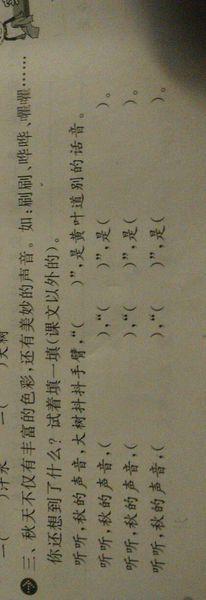 一(      )汗水    一(      )大树
三、秋天不仅有丰富的色彩,还有美妙的声音。如:刷刷、哗哗、嚯嚯……
你还想到了什么?试着填一填(课文以外的)。
听听,秋的声音,大树抖抖手臂,“(      )”,是黄叶道别的话音。
听听,秋的声音,(      ),“(      )”,是(      )。
听听,秋的声音,(      ),“(      )”,是(      )。
听听,秋的声音,(      ),“(      )”,是(      )。